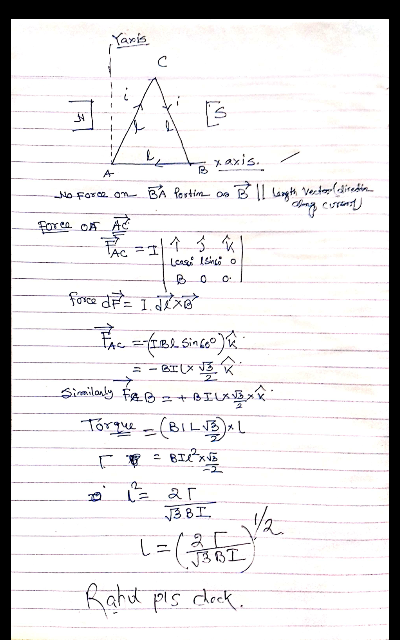 Yaxis
C
i
i
N
S
l
l
l
A
B
x axis.
No Force on BA Portion as B || length vector (direction
along current)
Force on AC
F_AC = I | î ĵ k̂ |
lcos60 lsin60 0
B 0 0
Force dF = I. dl × B
F_AC = -(IBl Sin60°) k̂
= -BIl × √3/2 k̂
Similarly F_CB = + BIl × √3/2 × k̂
Torque = (BIL √3/2) × l
Γ = BIl² × √3/2
l² = 2Γ/√3BI
l = (2Γ/√3BI)^1/2
Rahul pls check.